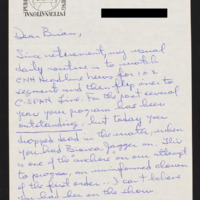 Dear Brian,
Since retirement, my usual
daily routine is to watch
CNN Headline News for 1 or 2
segment and then flip over
to C-SPAN live. For the past several
year your program has been
outstanding, but today you
dropped back in the mother, when
you had Bianca Jagger on. This
is one of the
to program, an uninformed clown
of the first order... I can't believe
you had her on the show